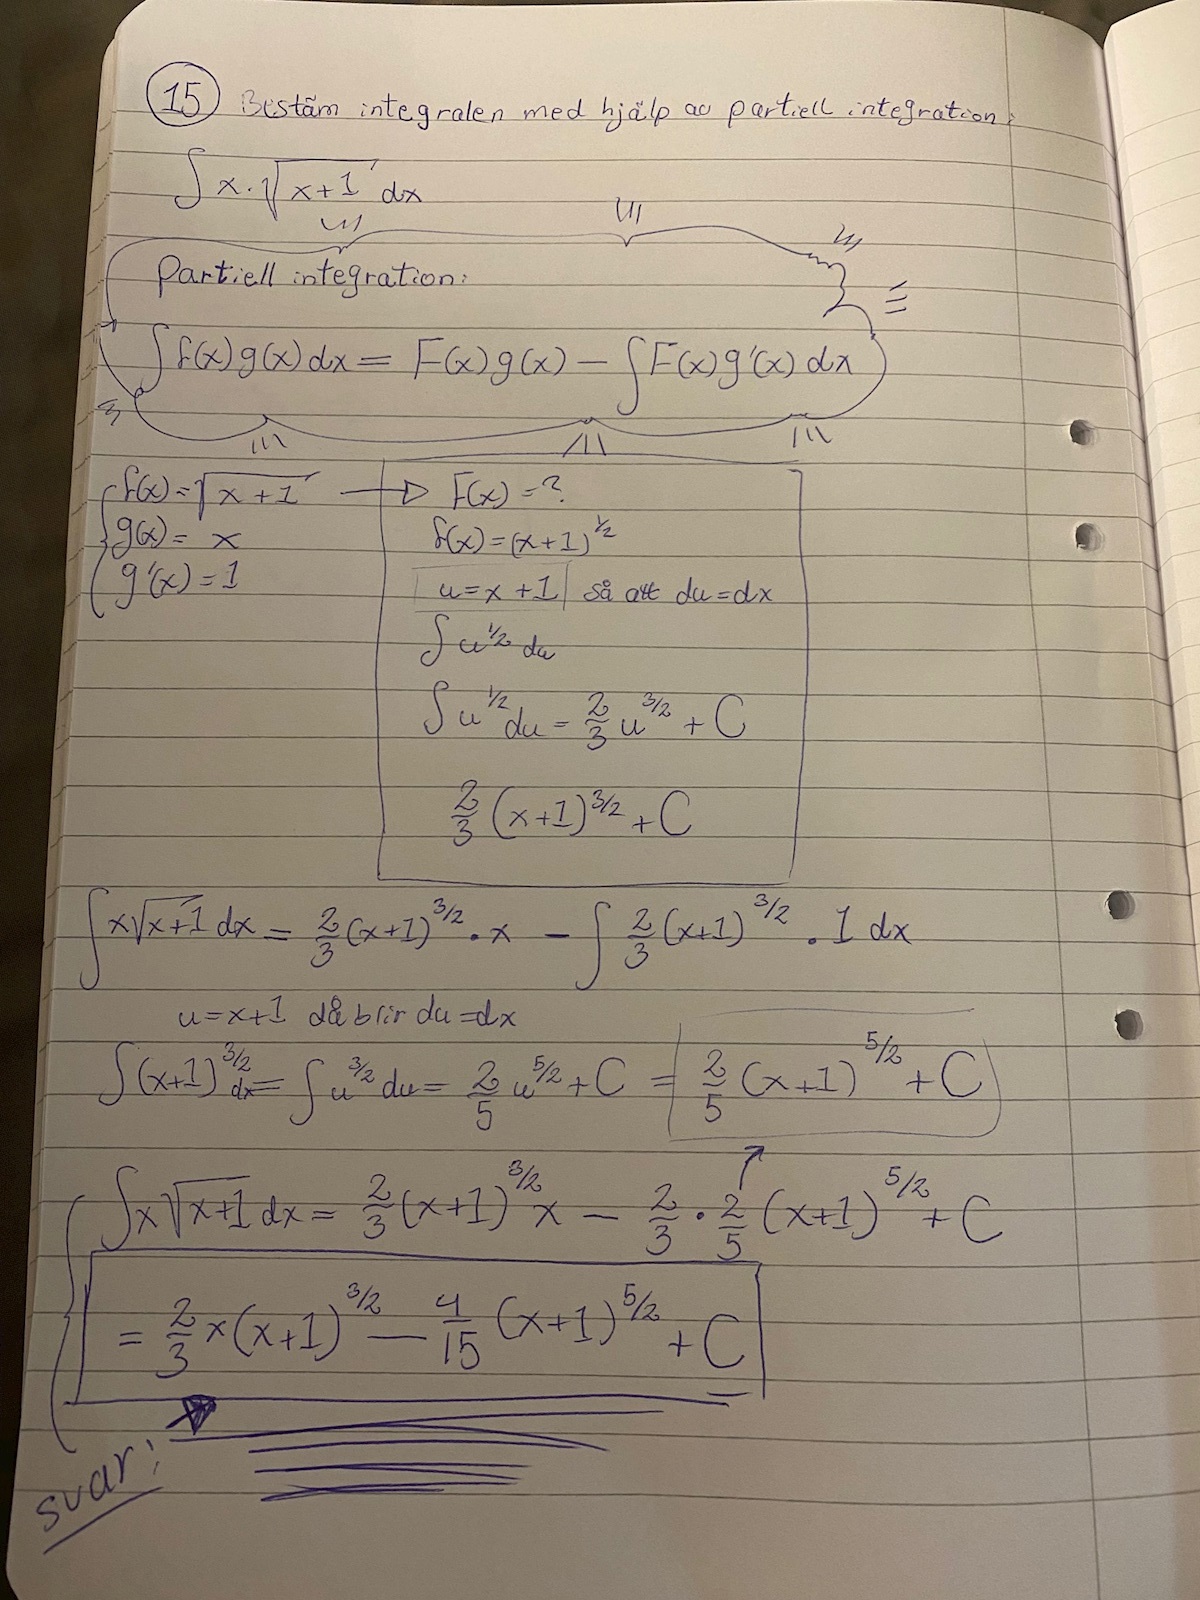 15 Bestäm integralen med hjälp av partiell integration:
∫ x·√(x+1) dx
Partiell integration:
∫ f(x)g(x)dx = F(x)g(x) − ∫ F(x)g'(x) dx
f(x) = √(x+1) → F(x) = ?
g(x) = x
g'(x) = 1
f(x) = (x+1)^1/2
u = x+1 så att du = dx
∫ u^1/2 du
∫ u^1/2 du = 2/3 u^3/2 + C
2/3 (x+1)^3/2 + C
∫ x√(x+1) dx = 2/3 (x+1)^3/2 · x − ∫ 2/3 (x+1)^3/2 · 1 dx
u = x+1 då blir du = dx
∫ (x+1)^3/2 dx = ∫ u^3/2 du = 2/5 u^5/2 + C = 2/5 (x+1)^5/2 + C
∫ x√(x+1) dx = 2/3 (x+1)^3/2 x − 2/3 · 2/5 (x+1)^5/2 + C
= 2/3 x(x+1)^3/2 − 4/15 (x+1)^5/2 + C
svar: